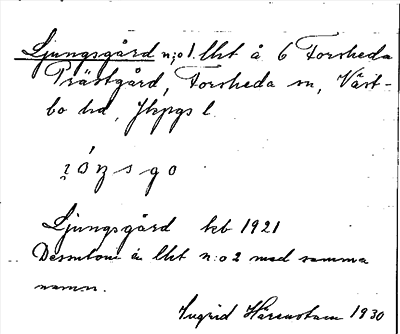 Ljungsgård n:o 1. lht å 6 Forsheda
Prästgård, Forsheda sn, Väst-
bo hd, Jkpgs l.
Ljungsgård kb 1921
Dessutom en lht n:o 2 med samma
namn.
Ingrid Härenstam 1930